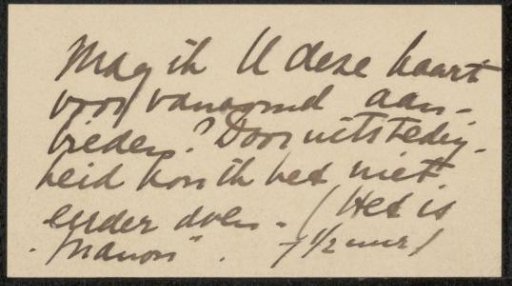 Mag ik U deze kaart
voor vanavond aan-
bieden? Door uitstedig-
heid kon ik het niet
eerder doen. (Het is
"Manon". 7 1/2 uur)